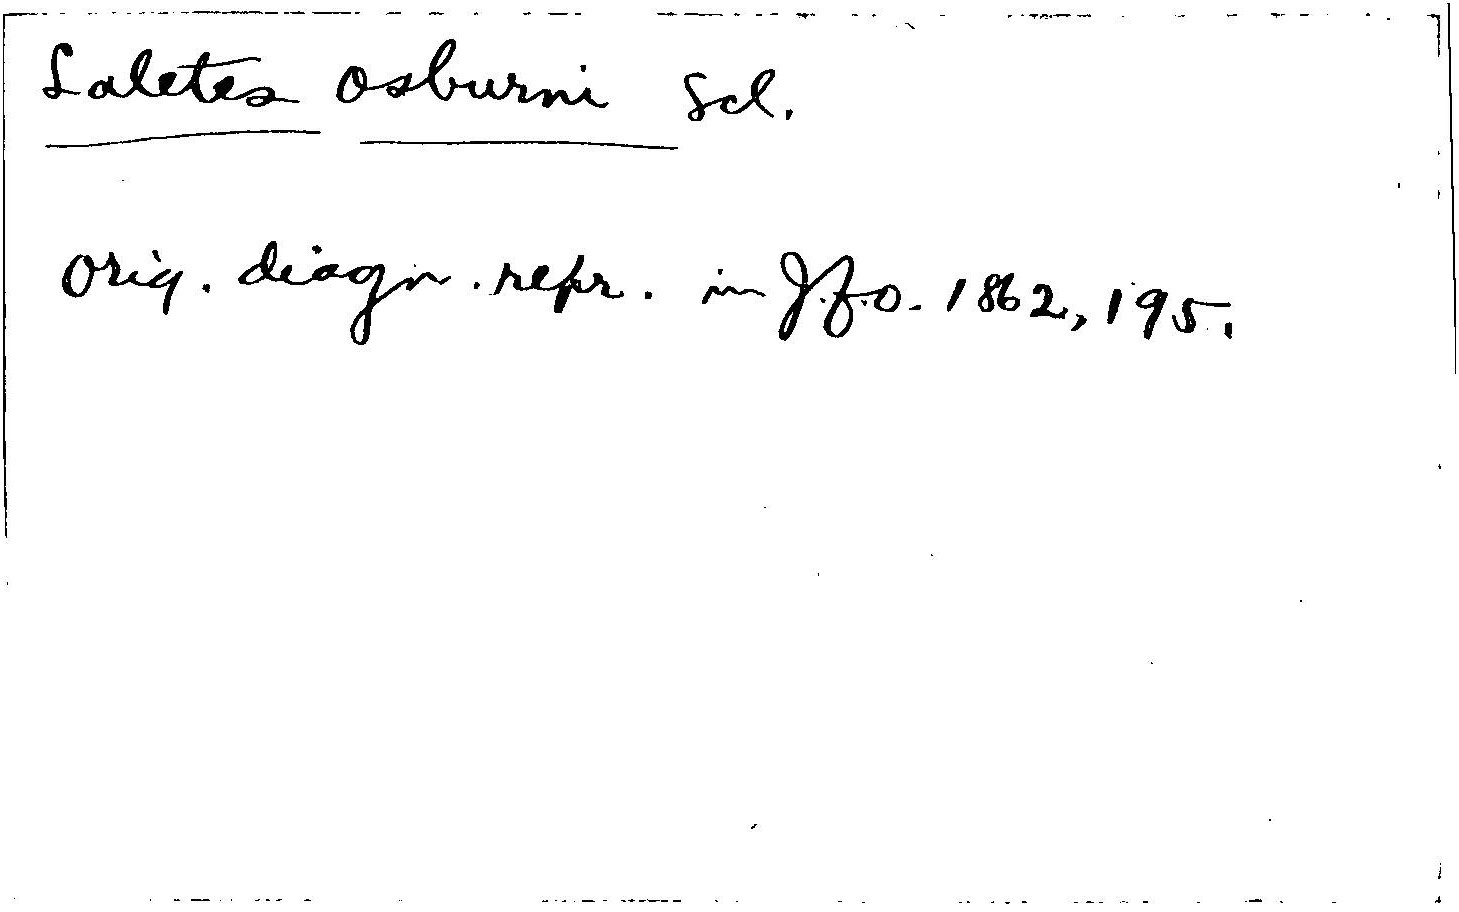 Laletes Osburni Scl.
Orig. diagn. repr. in J.f.O. 1862, 195.